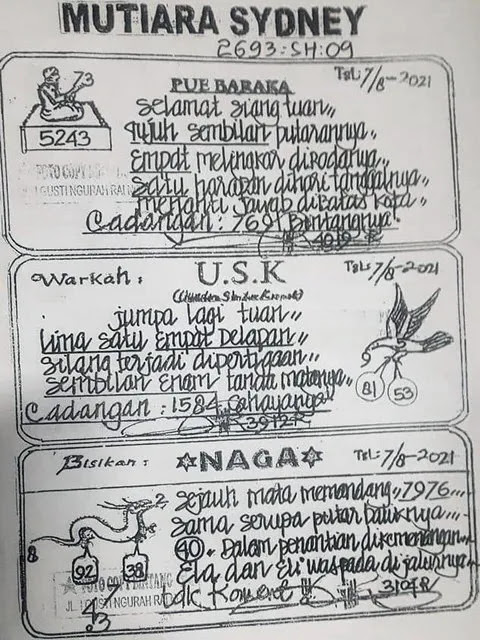 MUTIARA SYDNEY
2693:SH:09
73
5243
PUE BARAKA
Tgl: 7/8-2021
selamat siang tuan,,
tujuh sembilan putarannya,,
empat melingkar dirodanya,,
satu harapan dihari tanggalnya,,
menanti jawab dibatas kota
Cadangan: 769, Bintangnya
FOTO COPY
I GUSTI NGURAH RAI
Warkah:
U.S.K
Tgl: 7/8-2021
jumpa lagi tuan,,
lima satu empat delapan,,
silang terjadi dipertigaan,,
sembilan enam tanda matanya,,
Cadangan: 1584 Cahayanya
3912R
81
53
Bisikan:
NAGA
Tgl: 7/8-2021
sejauh mata memandang,, 7976,,,
sama serupa putar baliknya,,,,
40. Dalam penantian dikemenangan,
Ela dan Eli waspada di jalurnya,
3104R
2
8
92
38
13
FOTO COPY BINTANG
JL. I GUSTI NGURAH RAI